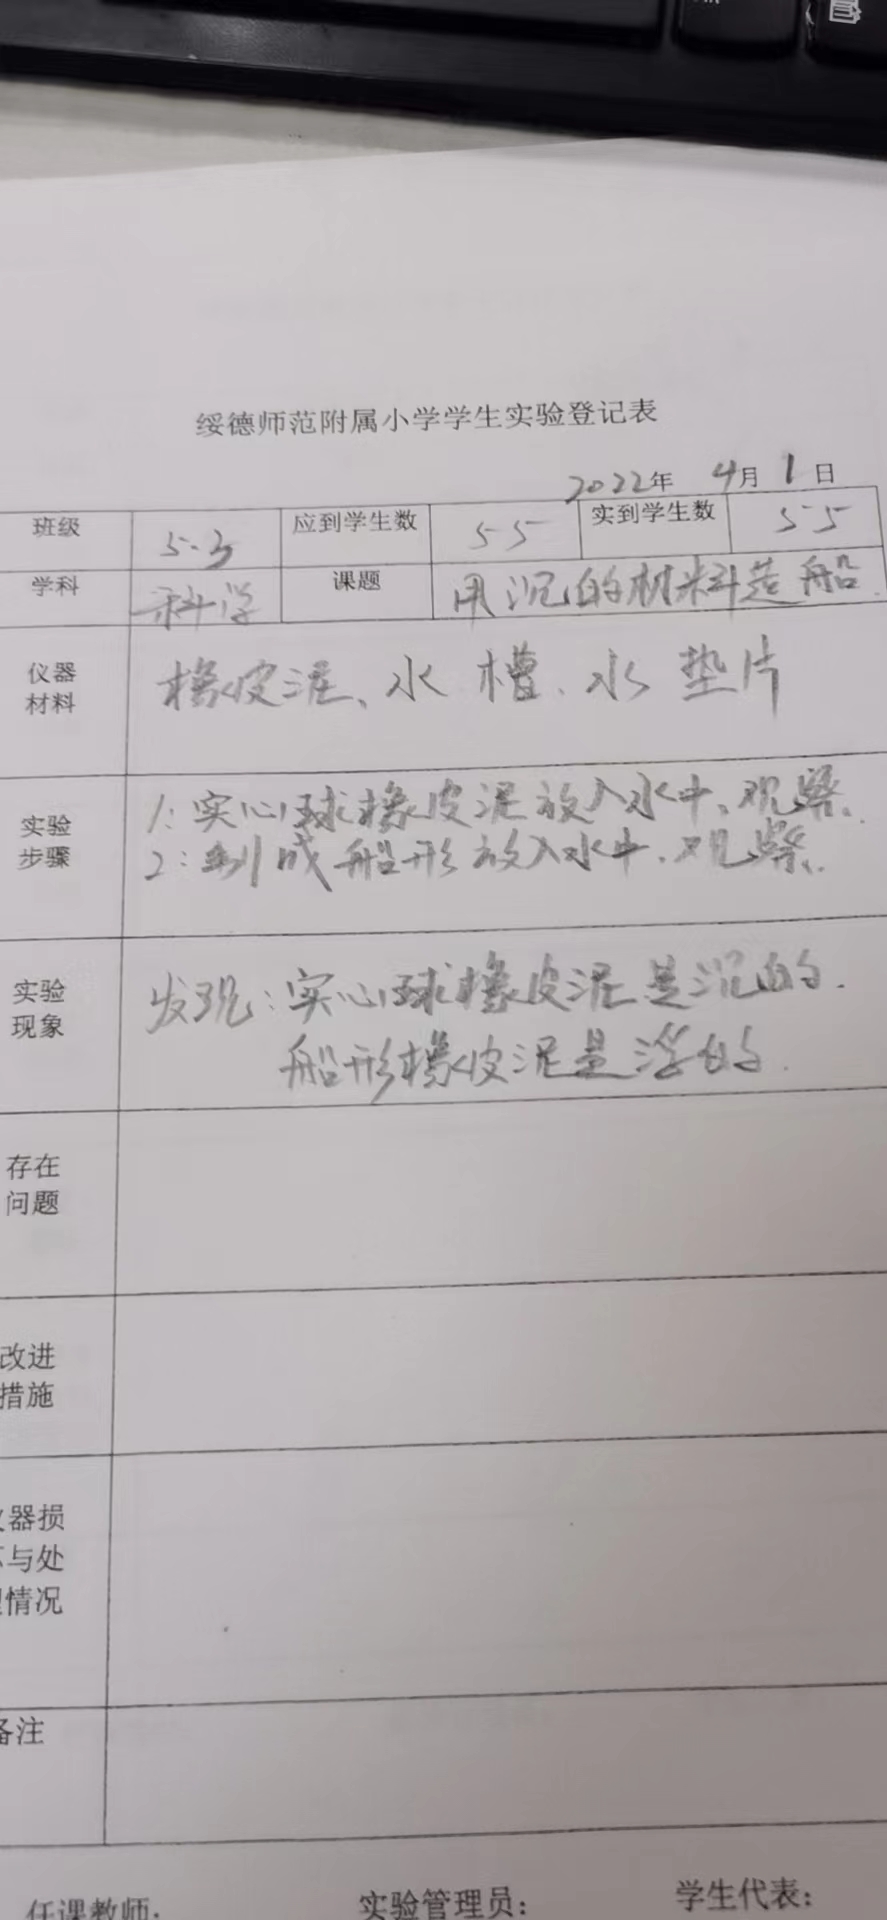 绥德师范附属小学学生实验登记表
2022年 4月 1日
班级 5.3 应到学生数 55 实到学生数 55
学科 科学 课题 用沉的材料造船
仪器
材料
橡皮泥、水槽、水 垫片
实验
步骤
1:实心球橡皮泥放入水中、观察.
2: 成船形放入水中、观察.
实验
现象
发现:实心球橡皮泥是沉的.
船形橡皮泥是浮的.
存在
问题
改进
措施
器损
与处
情况
备注
任课教师: 实验管理员: 学生代表: